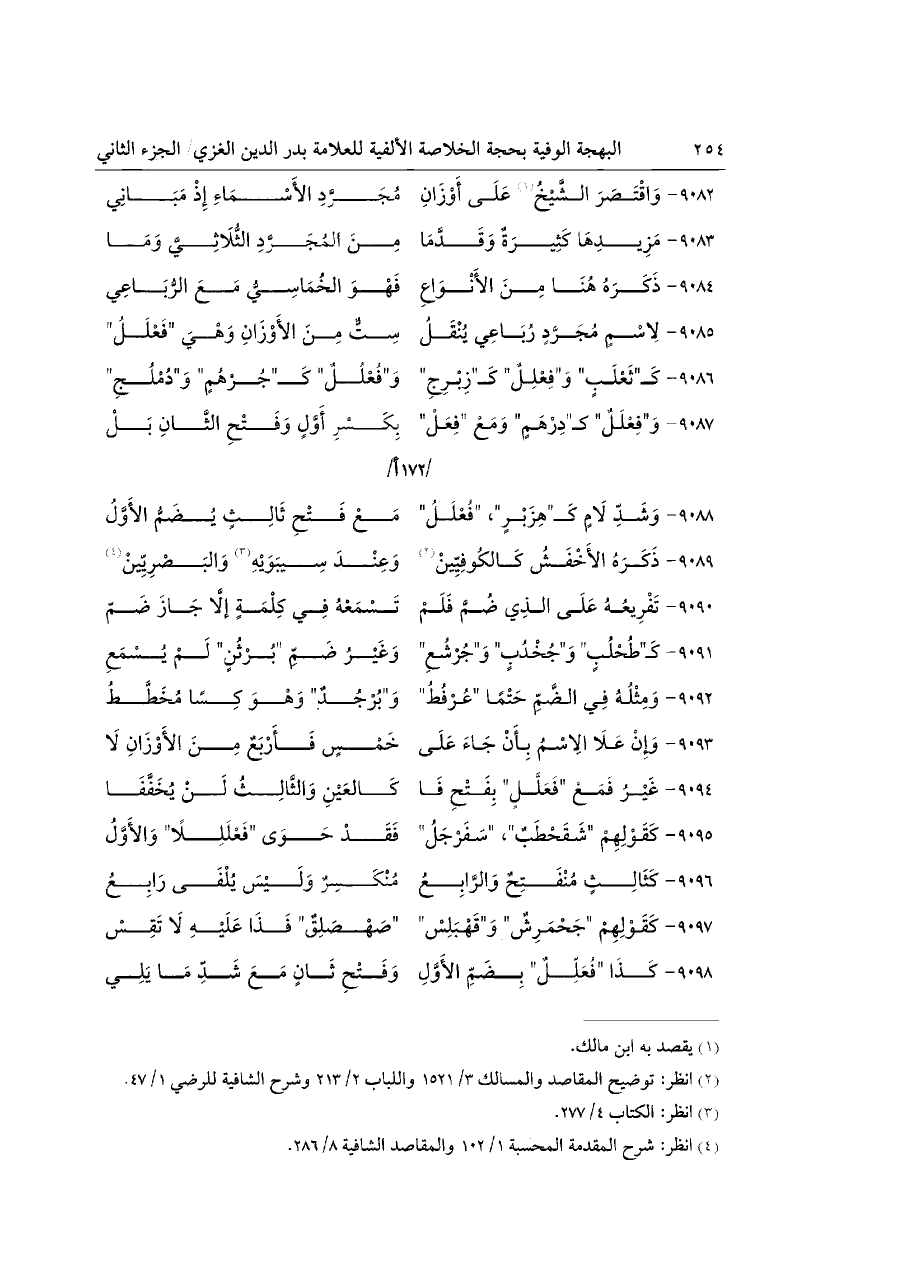 ٢٥٤ البهجة الوفية بحجة الخلاصة الألفية للعلامة بدر الدين الغزي/ الجزء الثاني
٩٠٨٢- وَاقْتَصَرَ الشَّيْخُ(١) عَلَى أَوْزَانِ مُجَرَّدِ الأَسْمَاءِ إِذْ مَبَانِي
٩٠٨٣- مَزِيدِهَا كَثِيرَةٌ وَقَدَّمَا مِنَ المُجَرَّدِ الثُّلَاثِيَّ وَمَا
٩٠٨٤- ذَكَرَهُ هُنَا مِنَ الأَنْوَاعِ فَهْوَ الخُمَاسِيُّ مَعَ الرُّبَاعِي
٩٠٨٥- لِاسْمٍ مُجَرَّدٍ رُبَاعِي يُنْقَلُ سِتٌّ مِنَ الأَوْزَانِ وَهْيَ "فَعْلَلُ"
٩٠٨٦- كَـ"ثَعْلَبٍ" وَ"فِعْلِلٌ" كَـ"زِبْرِجِ" وَ"فُعْلُلٌ" كَـ"جُرْهُمٍ" وَ"دُمْلُجِ"
٩٠٨٧- وَ"فِعْلَلٌ" كـ"دِرْهَمٍ" وَمَعْ "فِعَلْ" بِكَسْرِ أَوَّلٍ وَفَتْحِ الثَّانِ بَلْ
/١٧٢أ/
٩٠٨٨- وَشَدِّ لَامٍ كَـ"هِزَبْرٍ"، "فُعْلَلُ" مَعْ فَتْحِ ثَالِثٍ يُضَمُّ الأَوَّلُ
٩٠٨٩- ذَكَرَهُ الأَخْفَشُ كَالكُوفِيِّينْ(٢) وَعِنْدَ سِيبَوَيْهِ(٣) وَالبَصْرِيِّينْ(٤)
٩٠٩٠- تَفْرِيعُهُ عَلَى الذِي ضُمَّ فَلَمْ تَسْمَعْهُ فِي كِلْمَةٍ إلَّا جَازَ ضَمّ
٩٠٩١- كَـ"طُحْلُبٍ" وَ"جُخْدُبٍ" وَ"جُرْشُعِ" وَغَيْرُ ضَمِّ "بُرْثُنٍ" لَمْ يُسْمَعِ
٩٠٩٢- وَمِثْلُهُ فِي الضَّمِّ حَتْمًا "عُرْفُطُ" وَ"بُرْجُدٌ" وَهْوَ كِسًا مُخَطَّطُ
٩٠٩٣- وَإِنْ عَلَا الِاسْمُ بِأَنْ جَاءَ عَلَى خَمْسٍ فَأَرْبَعٌ مِنَ الأَوْزَانِ لَا
٩٠٩٤- غَيْرُ فَمَعْ "فَعَلَّلٍ" بِفَتْحِ فَا كَالعَيْنِ وَالثَّالِثُ لَنْ يُخَفَّفَا
٩٠٩٥- كَقَوْلِهِمْ "شَقَحْطَبٌ"، "سَفَرْجَلُ" فَقَدْ حَوَى "فَعْلَلِلًا" وَالأَوَّلُ
٩٠٩٦- كَثَالِثٍ مُنْفَتِحٌ وَالرَّابِعُ مُنْكَسِرٌ وَلَيْسَ يُلْفَى رَابِعُ
٩٠٩٧- كَقَوْلِهِمْ "جَحْمَرِشٌ" وَ"قَهْبَلِسْ" "صَهْصَلِقٌ" فَذَا عَلَيْهِ لَا تَقِسْ
٩٠٩٨- كَذَا "فُعَلِّلٌ" بِضَمِّ الأَوَّلِ وَفَتْحِ ثَانٍ مَعَ شَدِّ مَا يَلِي
(١) يقصد به ابن مالك.
(٢) انظر: توضيح المقاصد والمسالك ٣/ ١٥٢١ واللباب ٢/ ٢١٣ وشرح الشافية للرضي ١/ ٤٧.
(٣) انظر: الكتاب ٤/ ٢٧٧.
(٤) انظر: شرح المقدمة المحسبة ١/ ١٠٢ والمقاصد الشافية ٨/ ٢٨٦.